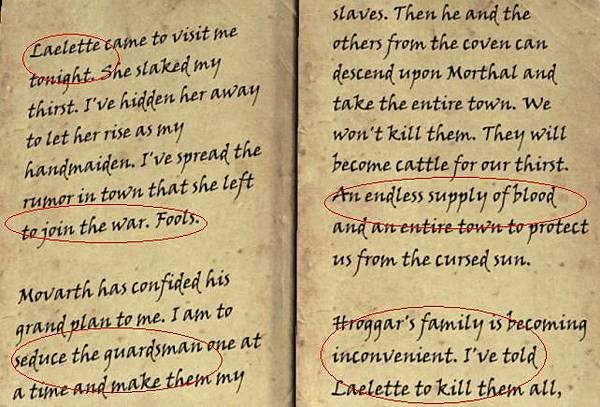 Laelette came to visit me
tonight. She slaked my
thirst. I've hidden her away
to let her rise as my
handmaiden. I've spread the
rumor in town that she left
to join the war. Fools.
Movarth has confided his
grand plan to me. I am to
seduce the guardsman one at
a time and make them my
slaves. Then he and the
others from the coven can
descend upon Morthal and
take the entire town. We
won't kill them. They will
become cattle for our thirst.
An endless supply of blood
and an entire town to protect
us from the cursed sun.
Hroggar's family is becoming
inconvenient. I've told
Laelette to kill them all,